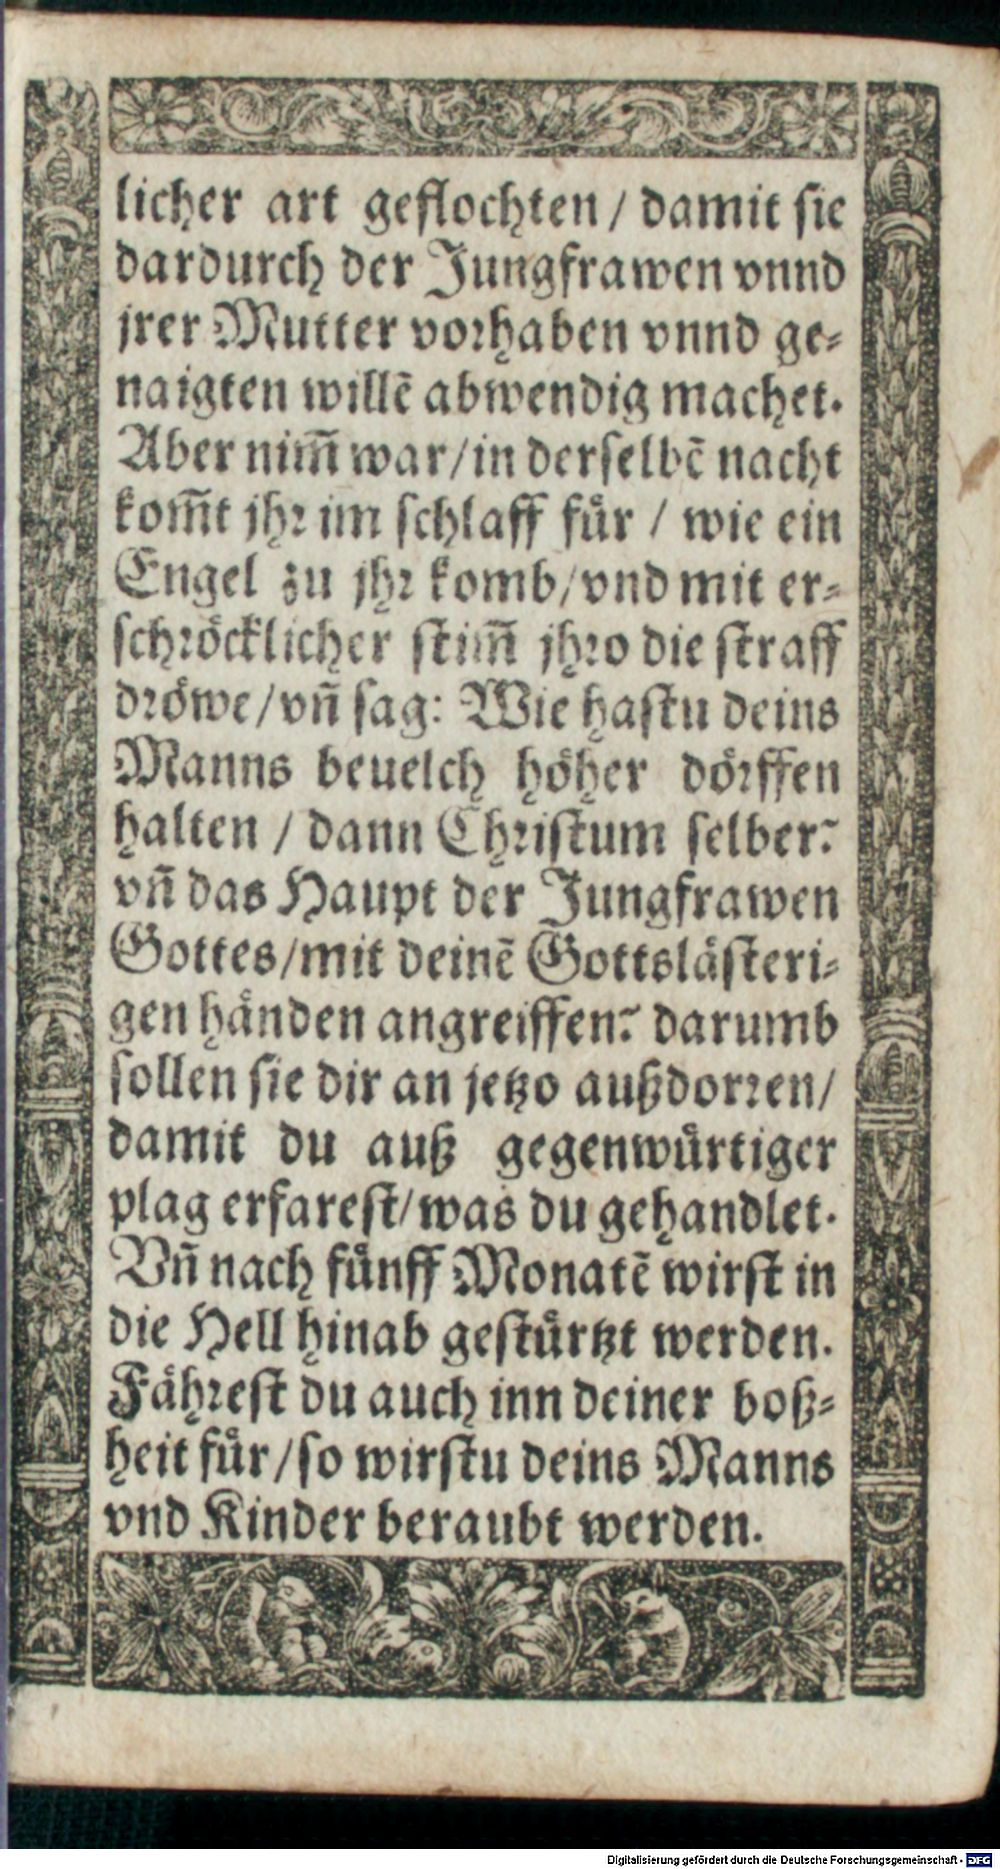 licher art geflochten / damit sie
dardurch der Jungfrawen vnnd
jrer Mutter vorhaben vnnd ge-
naigten willē abwendig machet.
Aber nim̄ war / in derselbē nacht
kom̄t jhr im schlaff für / wie ein
Engel zu jhr komb / vnd mit er-
schröcklicher stim̄ jhro die straff
dröwe / vn̄ sag: Wie hastu deins
Manns beuelch höher dörffen
halten / dann Christum selber?
vn̄ das Haupt der Jungfrawen
Gottes / mit deinē Gottslästeri-
gen händen angreiffen? darumb
sollen sie dir an jetzo außdorren /
damit du auß gegenwürtiger
plag erfarest / was du gehandlet.
Vn̄ nach fünff Monatē wirst in
die Hell hinab gestürtzt werden.
Fährest du auch inn deiner boß-
heit für / so wirstu deins Manns
vnd Kinder beraubt werden.
Digitalisierung gefördert durch die Deutsche Forschungsgemeinschaft - DFG